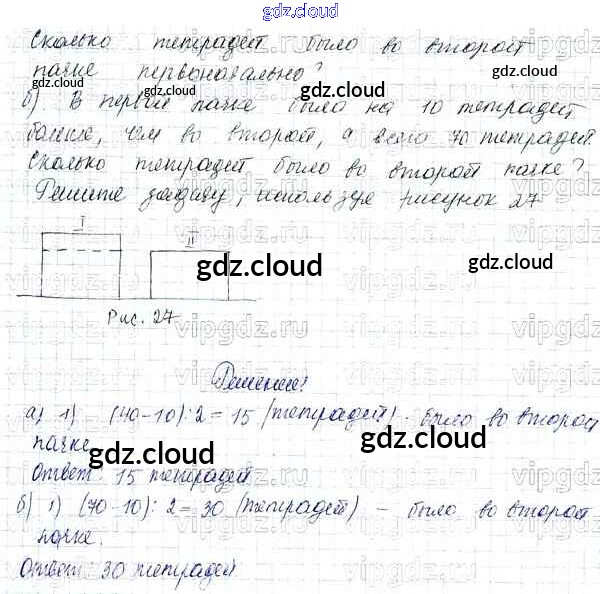 gdz.cloud
Сколько тетрадей было во второй
пачке первоначально?
б) В первой пачке было на 10 тетрадей
больше, чем во второй, а всего 70 тетрадей.
Сколько тетрадей было во второй пачке?
Решите задачу, используя рисунок 27
I II
gdz.cloud gdz.cloud
Рис. 27
Решение:
а) 1) (40-10):2=15 (тетрадей) - было во второй
пачке
gdz.cloud gdz.cloud
Ответ: 15 тетрадей
б) 1) (70-10):2=30 (тетрадей) - было во второй
пачке.
Ответ: 30 тетрадей
vipgdz.ru